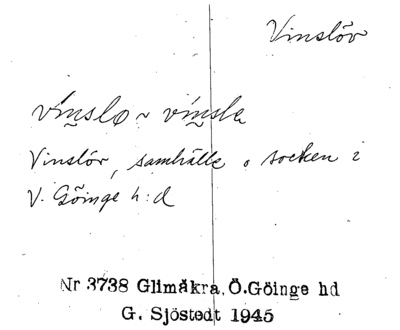 Vinslöv
vínslo ~ vínsla
Vinslöv, samhälle o socken i
V. Göinge h:d
Nr 3738 Glimåkra, Ö.Göinge hd
G. Sjöstedt 1945